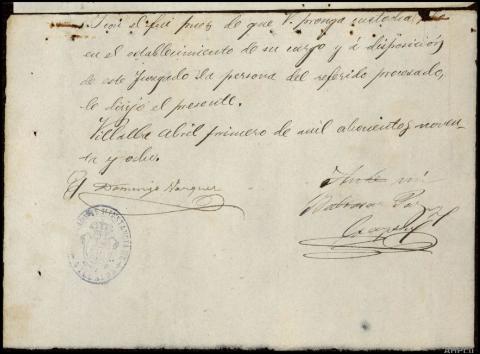 Con el fin pues de que V. ponga custodia
en el establecimiento de su cargo y á disposición
de este Juzgado la persona del referido procesado,
le dirijo el presente.
Villalba Abril primero de mil ochocientos noven-
ta y ocho.
Domingo Vazquez
Ante mi
Baltasar